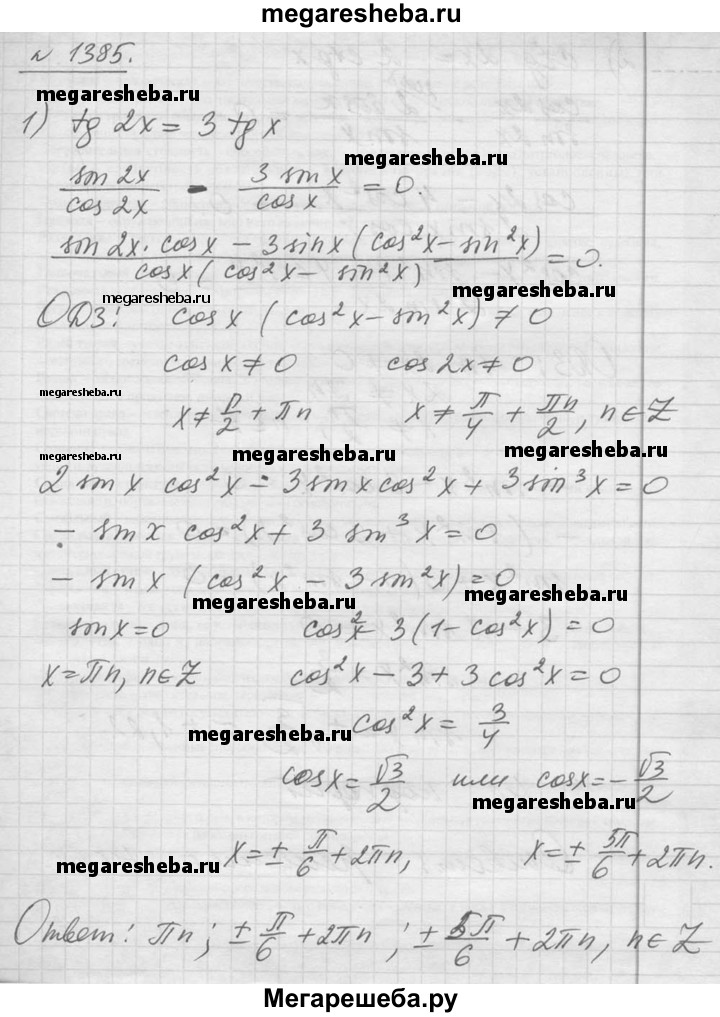 megaresheba.ru
№ 1385.
megaresheba.ru
1) tg 2x = 3 tg x
megaresheba.ru
sin 2x / cos 2x - 3 sin x / cos x = 0.
sin 2x · cos x - 3 sin x (cos²x - sin²x) / cos x (cos²x - sin²x) = 0.
megaresheba.ru
megaresheba.ru
ОДЗ! cos x (cos²x - sin²x) ≠ 0
cos x ≠ 0 cos 2x ≠ 0
megaresheba.ru
x ≠ π/2 + πn x ≠ π/4 + πn/2, n ∈ Z
megaresheba.ru
megaresheba.ru
2 sin x cos²x - 3 sin x cos²x + 3 sin³x = 0
- sin x cos²x + 3 sin³x = 0
- sin x (cos²x - 3 sin²x) = 0
megaresheba.ru
megaresheba.ru
sin x = 0 cos²x - 3(1 - cos²x) = 0
x = πn, n ∈ Z cos²x - 3 + 3 cos²x = 0
megaresheba.ru
cos²x = 3/4
cos x = √3/2 или cos x = - √3/2
megaresheba.ru
x = ± π/6 + 2πn, x = ± 5π/6 + 2πn.
megaresheba.ru
Ответ! πn; ± π/6 + 2πn; ± 5π/6 + 2πn, n ∈ Z
Мегарешеба.ру